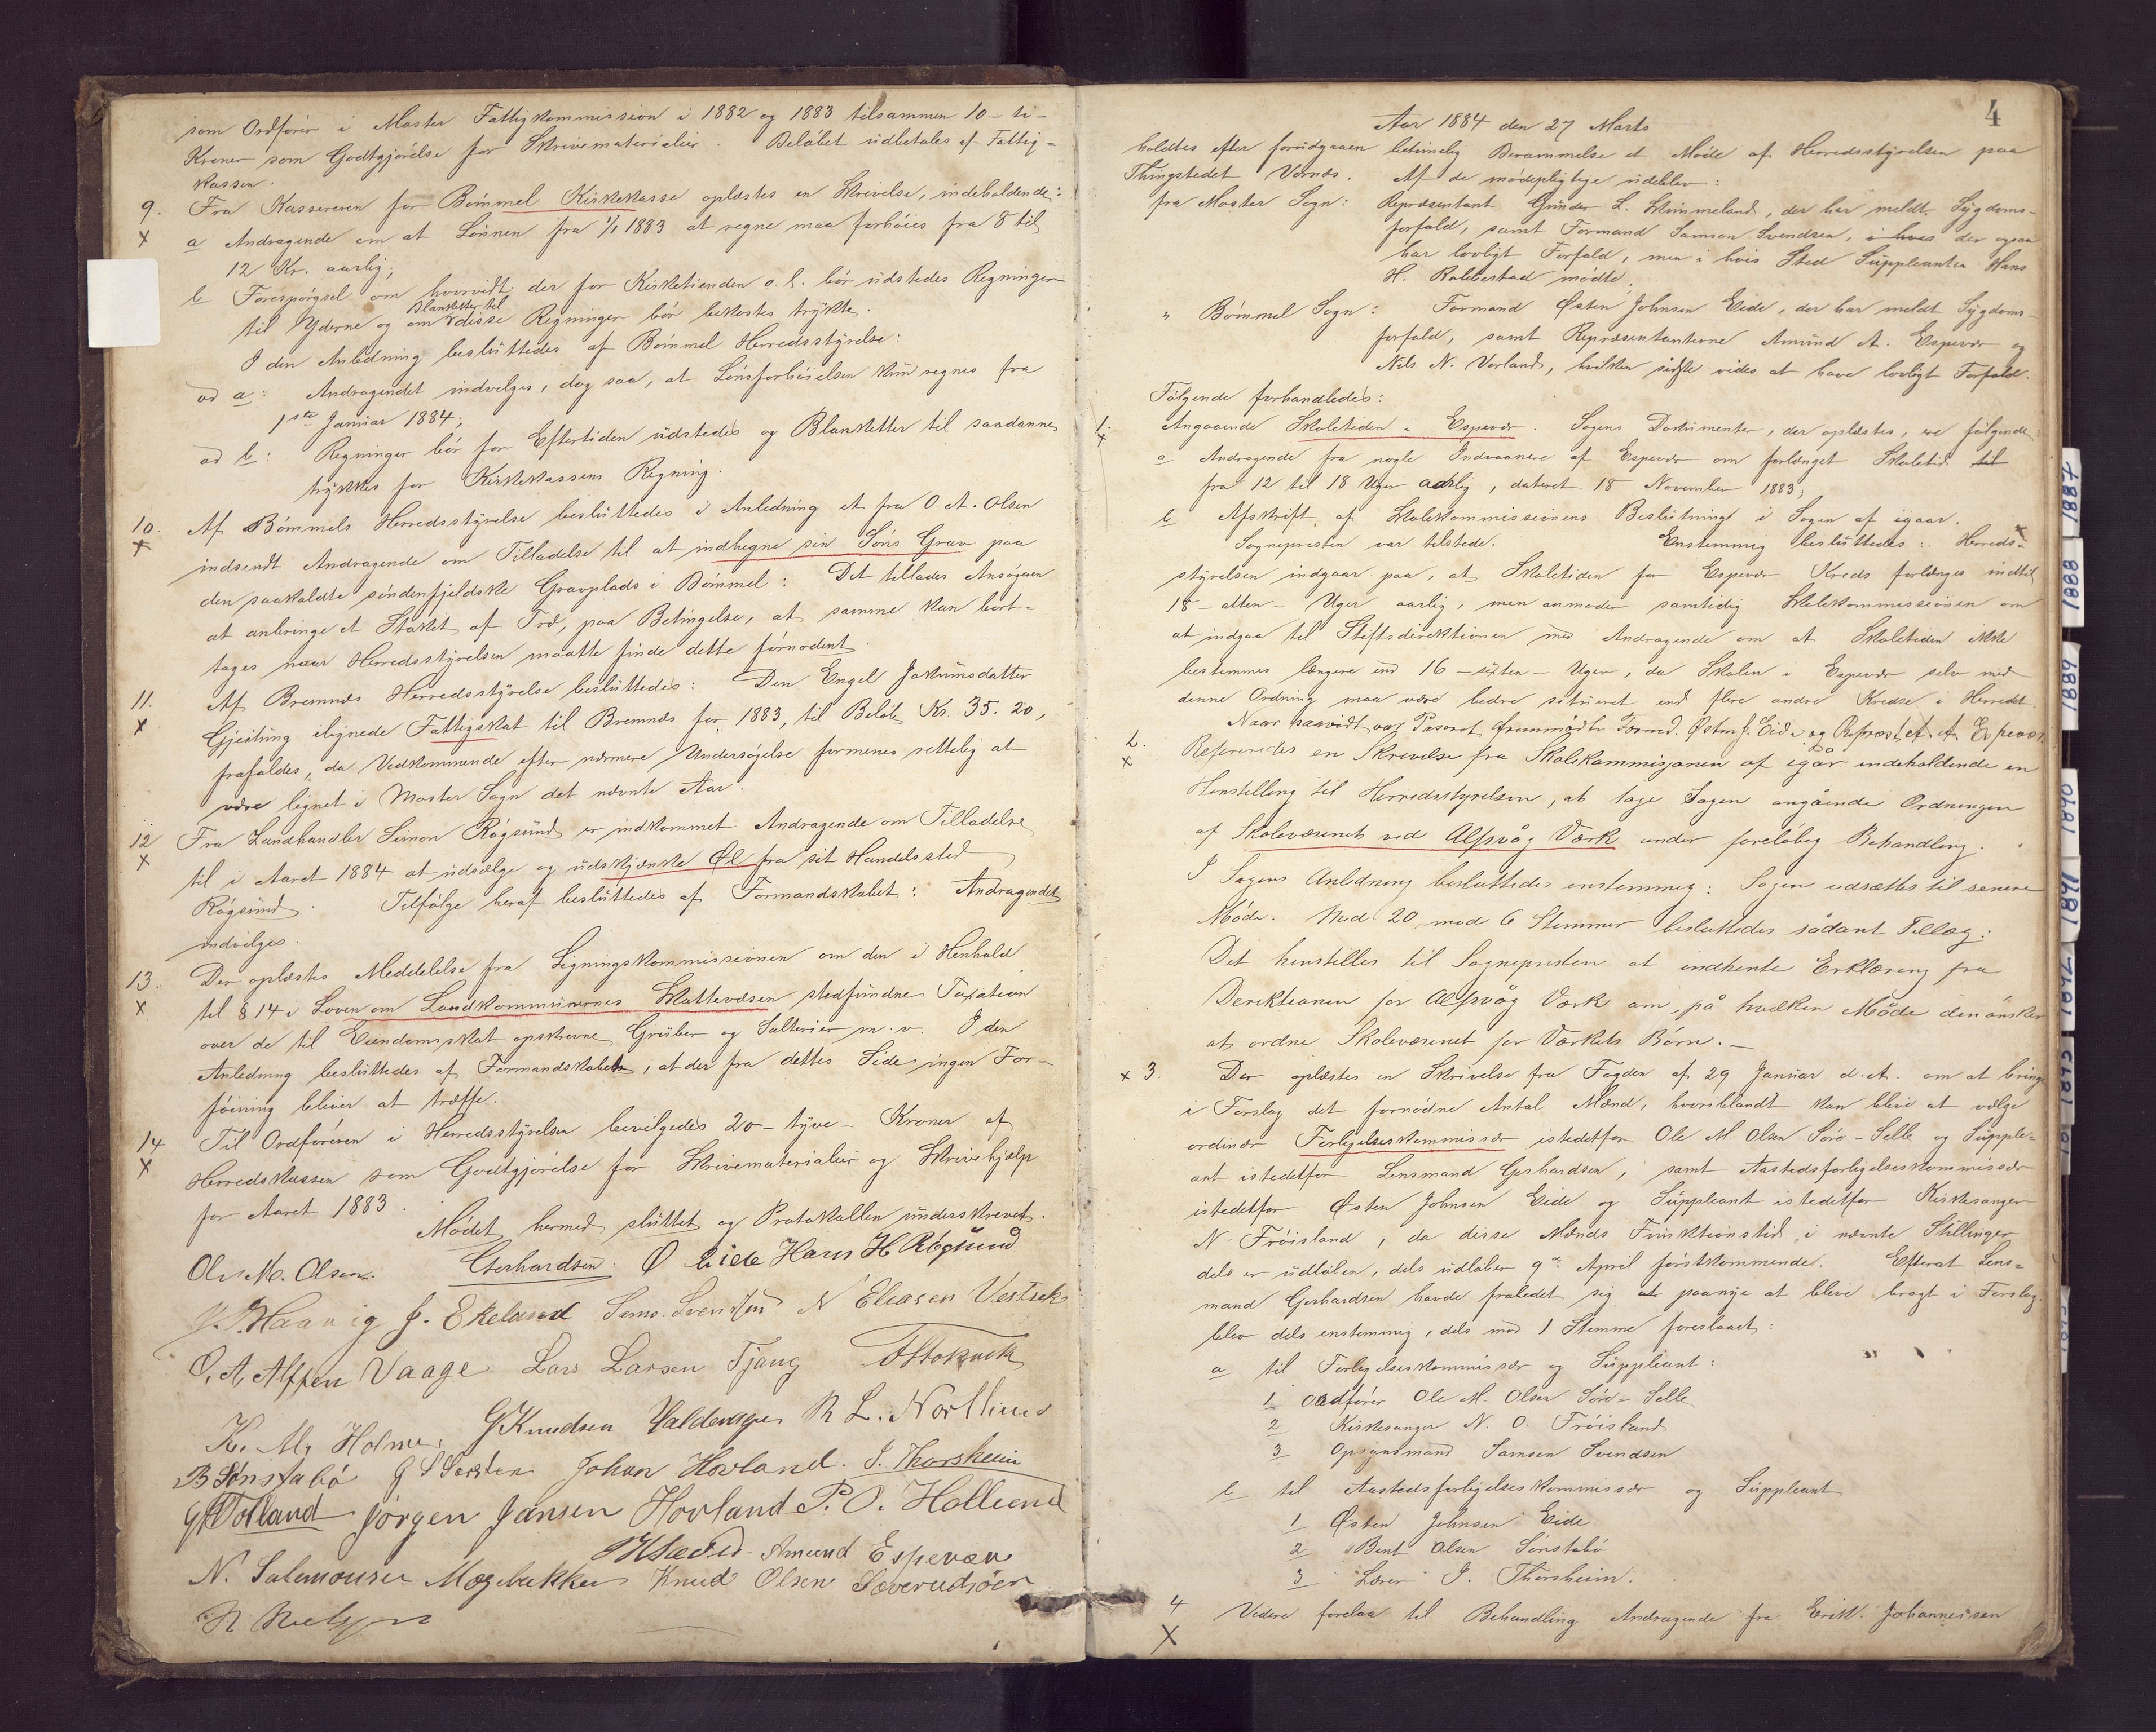 som Ordfører i Moster Fattigkommission i 1882 og 1883 tilsammen 10 - ti -
Kroner som Godtgjørelse for Skrivematerialier. Beløbet udbetales af Fattig-
kassen.
9. Fra Kassereren for Bømmel Kirkekasse oplæstes en Skrivelse, indeholdende:
x a Andragende om at Lønnen fra 1/1 1883 at regne maa forhøies fra 8 til
12 Kr. aarlig;
b Forespørgsel om hvorvidt der for Kirketienden o. l. bør udstedes Regninger
til Yderne og om Blanketter til disse Regninger bør bekostes trykte.
I den Anledning besluttedes af Bømmel Herredsstyrelse:
ad a: Andragendet indvilges, dog saa, at Lønsforhøielsen kun regnes fra
1ste Januar 1884;
ad b: Regninger bør for Eftertiden udstedes og Blanketter til saadanne
trykkes for Kirkekassens Regning.
10. Af Bømmels Herredsstyrelse besluttedes i Anledning et fra O. A. Olsen
x indsendt Andragende om Tilladelse til at indhegne sin Søns Grav paa
den saakaldte søndenfjeldske Gravplads i Bømmel: Det tillades Ansøgeren
at anbringe et Stakit af Træ, paa Betingelse, at samme kan bort-
tages naar Herredsstyrelsen maatte finde dette fornødent.
11. Af Bremnæs Herredsstyrelse besluttedes: Den Engel Jokumsdatter
x Gjeitung ilignede Fattigskat til Bremnæs for 1883, til Beløb Kr. 35. 20,
frafaldes, da Vedkommende efter nærmere Undersøgelse formenes rettelig at
være lignet i Moster Sogn det nævnte Aar.
12 Fra Landhandler Simon Røgsund er indkommet Andragende om Tilladelse
x til i Aaret 1884 at udsælge og udskjænke Øl fra sit Handelssted
Røgsund. Tilfølge heraf besluttedes af Formandskabet: Andragendet
indvilges.
13. Der oplæstes Meddelelse fra Ligningskommissionen om den i Henhold
x til § 14 i Loven om Landkommunernes Skattevæsen stedfundne Taxation
over de til Eiendomsskat opskrevne Gruber og Salterier m. v. I den
Anledning besluttedes af Formandskabet, at der fra dettes Side ingen For-
føining bliver at træffe.
14 Til Ordføreren i Herredsstyrelsen bevilgedes 20 - tyve - Kroner af
x Herredskassen som Godtgjørelse for Skrivematerialier og Skrivehjælp
for Aaret 1883.
Mødet hermed sluttet og Protokollen underskrevet.
Ole M. Olsen. Gerhardsen. Ø Eide Hans H Røgsund
Haavig J. Ekeland Sams. Svendsen N Eliasen Vestvik
O. A. Alfsen Vaage Lars Larsen Tjang
K. M. Holme. G Knudsen R L. Nortland
B Sønstabø Johan Hovland. J. Thorsheim
Jørgen Jansen Hovland P. O. Hollund
Amund Espevær
N. Salemonsen Møgebakken Knud Olsen
4
Aar 1884 den 27 Marts
holdtes efter forudgaaen betimelig Berammelse et Møde af Herredsstyrelsen paa
Thingstedet Vernæs. Af de mødepligtige udeblev:
fra Moster Sogn: Repræsentant Gunder L. Skimmeland, der har meldt Sygdoms-
forfald, samt Formand Samson Svendsen, i hves der ogsaa
har lovligt Forfald, men i hvis Sted Suppleanten Hans
H. Rolbestad mødte.
" Bømmel Sogn: Formand Østen Johnsen Eide, der har meldt Sygdoms-
forfald, samt Repræsentanterne Amund A. Espevær og
Nils N. Vorland, hvilken sidste vides at have lovligt Forfald.
Følgende forhandledes:
1. Angaaende Skoletiden i Espevær. Sagens Dokumenter, der oplæstes, ere følgende:
x a Andragende fra nogle Indvaanere af Espevær om forlænget Skoletid til
fra 12 til 18 Uger aarlig, dateret 18 November 1883;
b Afskrift af Skolekommissionens Beslutning i Sagen af igaar.
Sognepresten var tilstede. Enstemmig besluttedes: Herreds-
styrelsen indgaar paa, at Skoletiden for Espevær Kreds forlænges indtil
18 - atten - Uger aarlig, men anmoder samtidig Skolekommissionen om
at indgaa til Stiftsdirektionen med Andragende om at Skoletiden ikke
bestemmes længere end 16 - sexten - Uger, da Skolen i Espevær selv med
denne Ordning maa være bedre situeret end flere andre Kredse i Herredet.
Naar saavidt var Passeret fremmødte Formd. Østen J. Eide og Repræst. A. A. Espevær.
2. Refereredes en Skrivelse fra Skolekommisjonen af igår indeholdende en
x Henstilling til Herredsstyrelsen, at tage Sagen angående Ordningen
af Skolevæsenet ved Alfsvåg Værk under foreløbig Behandling.
I Sagens Anledning besluttedes enstemmig: Sagen udsættes til senere
Møde. Med 20 mod 6 Stemmer besluttedes sådant Tillæg:
Det henstilles til Sognepresten at indhente Erklæring fra
Derektionen for Alfsvåg Værk om, på hvilken Måde den ønsker
at ordne Skolevæsenet for Værkets Børn. —
x 3. Der oplæstes en Skrivelse fra Fogden af 29 Januar d. A. om at bringe
i Forslag det fornødne Antal Mænd, hvoriblandt kan blive at vælge
ordinær Forligelseskommissær istedetfor Ole M. Olsen Søre-Selle og Supple-
ant istedetfor Lensmand Gerhardsen, samt Aastedsforligelseskommissær
istedetfor Østen Johnsen Eide og Suppleant istedetfor Kirkesanger
N. Frøisland, da disse Mænds Funktionstid i nævnte Stillinger
dels er udløben, dels udløber 9de April førstkommende. Efterat Lens-
mand Gerhardsen havde frabedet sig at paanye at blive bragt i Forslag,
blev dels enstemmig, dels mod 1 Stemme foreslaaet:
a til Forligelseskommissær og Suppleant:
1 Ordfører Ole M. Olsen Søre-Selle
2 Kirkesanger N. O. Frøisland
3 Opsynsmand Samson Svendsen
b til Aastedsforligelseskommissær og Suppleant
1 Østen Johnsen Eide
2 Bent Olsen Sønstabø
3 Lærer J. Thorsheim.
4 Videre forelaa til Behandling Andragende fra Erik Johannessen
x
1887
1888
1889
1890
1891
1892
1893